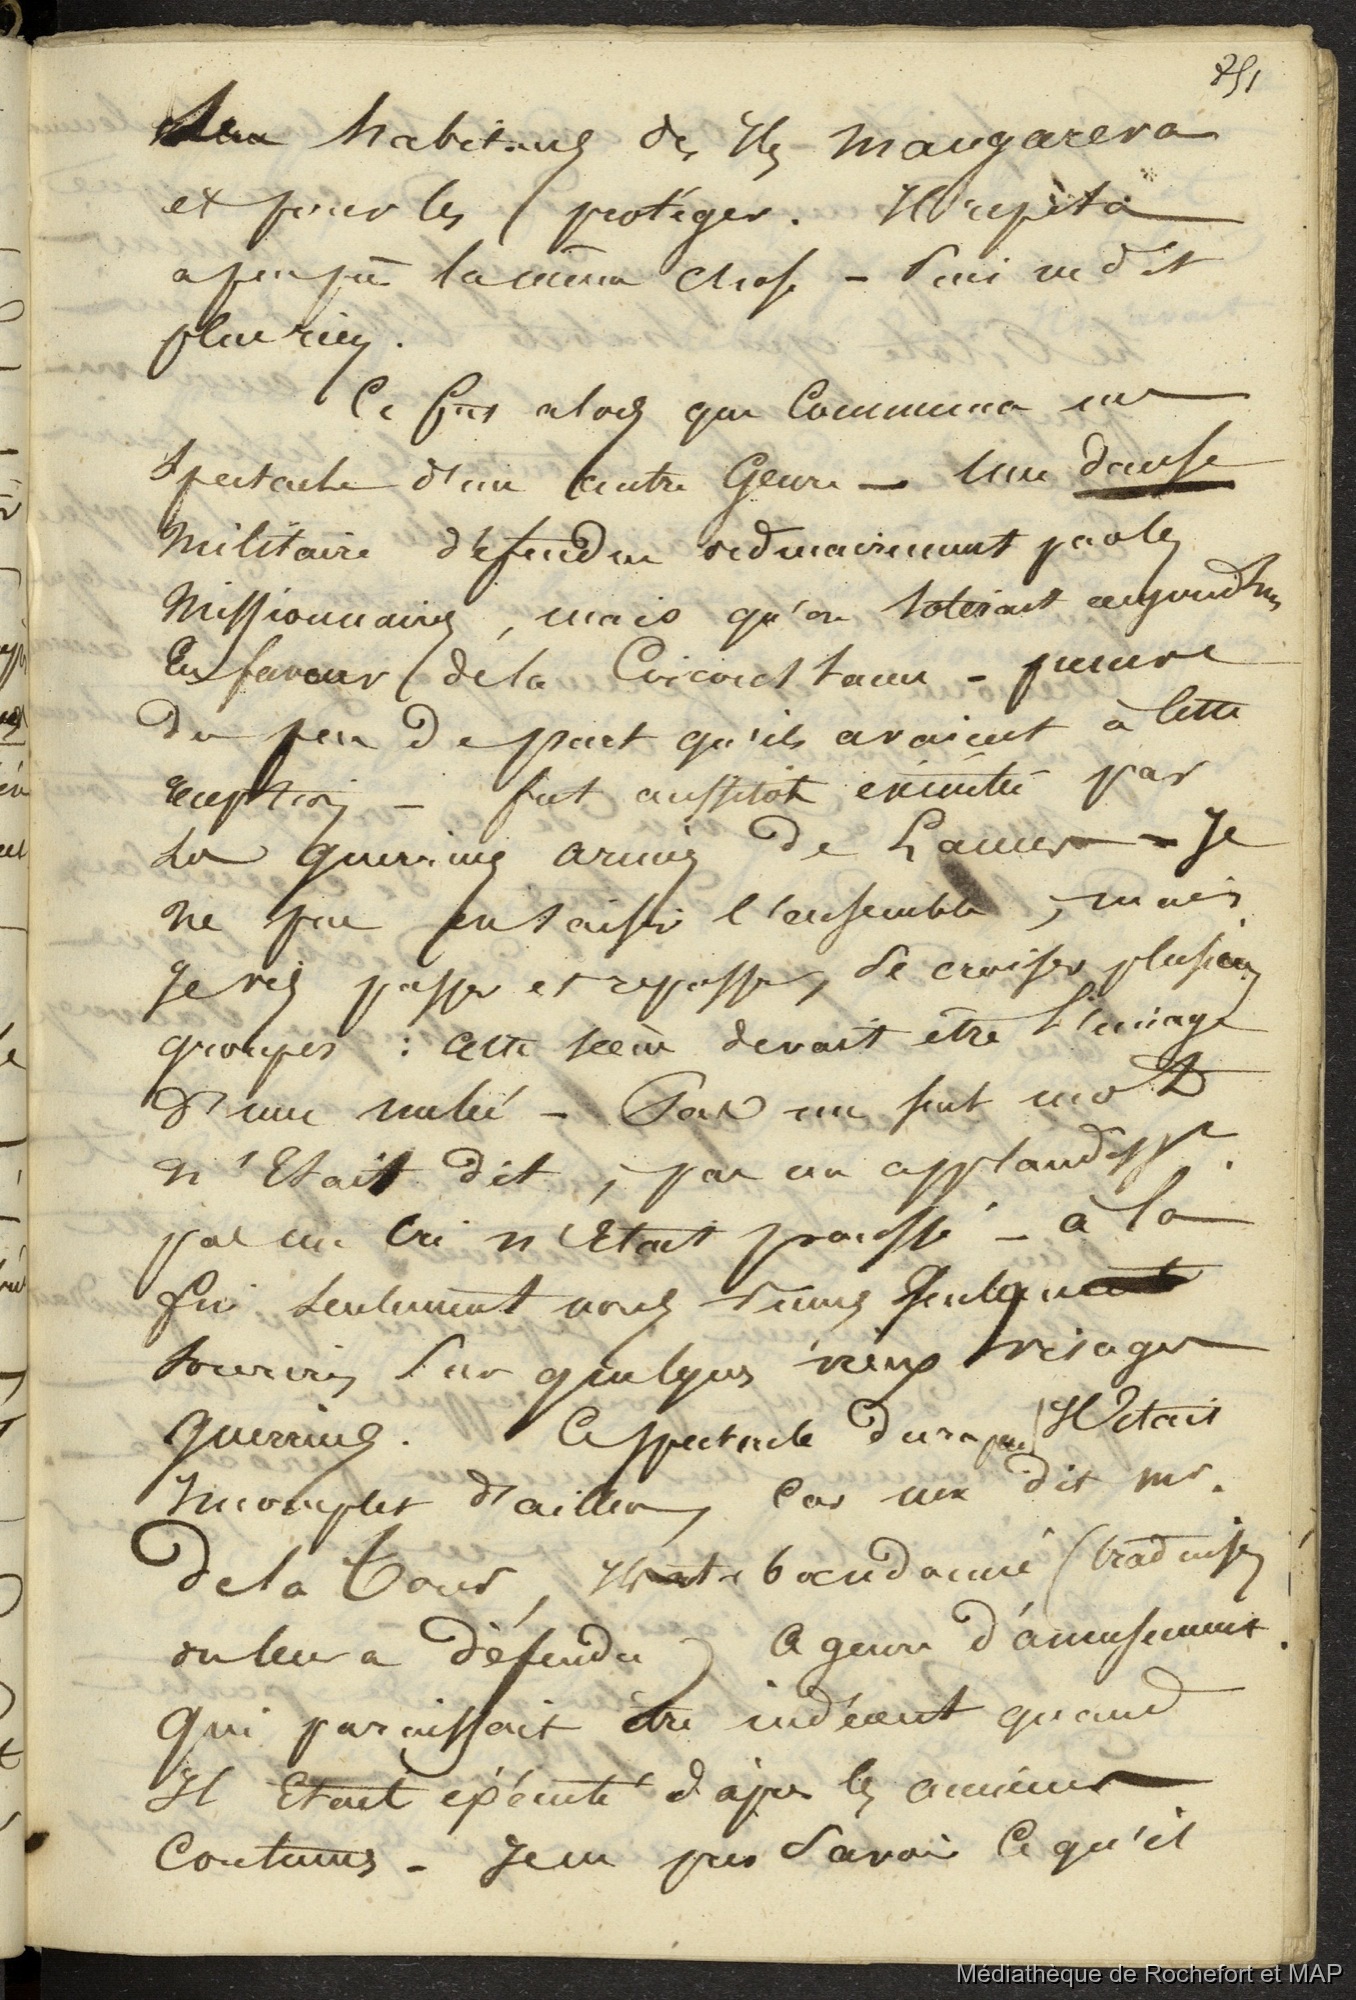 251
habitans des Iles mangareva
et pour les protéger. Il répéta
a peu près la même chose - Puis ne dit
plus rien.
Ce fut alors que Commença un
Spectacle d'un autre Genre - Une danse
Militaire défendue ordinairement par les
Missionnaires, mais qu'on tolérait aujourd'hui
En faveur de la Circonstance - preuve
du peu de part qu'ils avaient à cette
reception - fut aussitôt éxécutée par
les guerriers armés de Lances - Je
ne pus en saisir l'ensemble, mais
je vis passer et repasser, se croiser plusieurs
groupes : cette scène devait être l'image
d'une mêlée - Pas un seul mot
n'Etait dit, pas un applaudisst.
pas un Cri n'Etait poussé - à la
fin seulement nous vimes
sourires sur quelques vieux visages
guerriers. Ce spectacle dura peu Il était
Incomplet d'ailleurs, Car me dit mr.
De la Tour, Ils ont abandonné (traduisez
on leur a défendu) Ce genre d'amusement.
qui paraissait être indécent quand
Il Etait éxécuté d'après les anciennes
Coutumes - Je ne pus Savoir Ce qu'il
Médiathèque de Rochefort et MAP